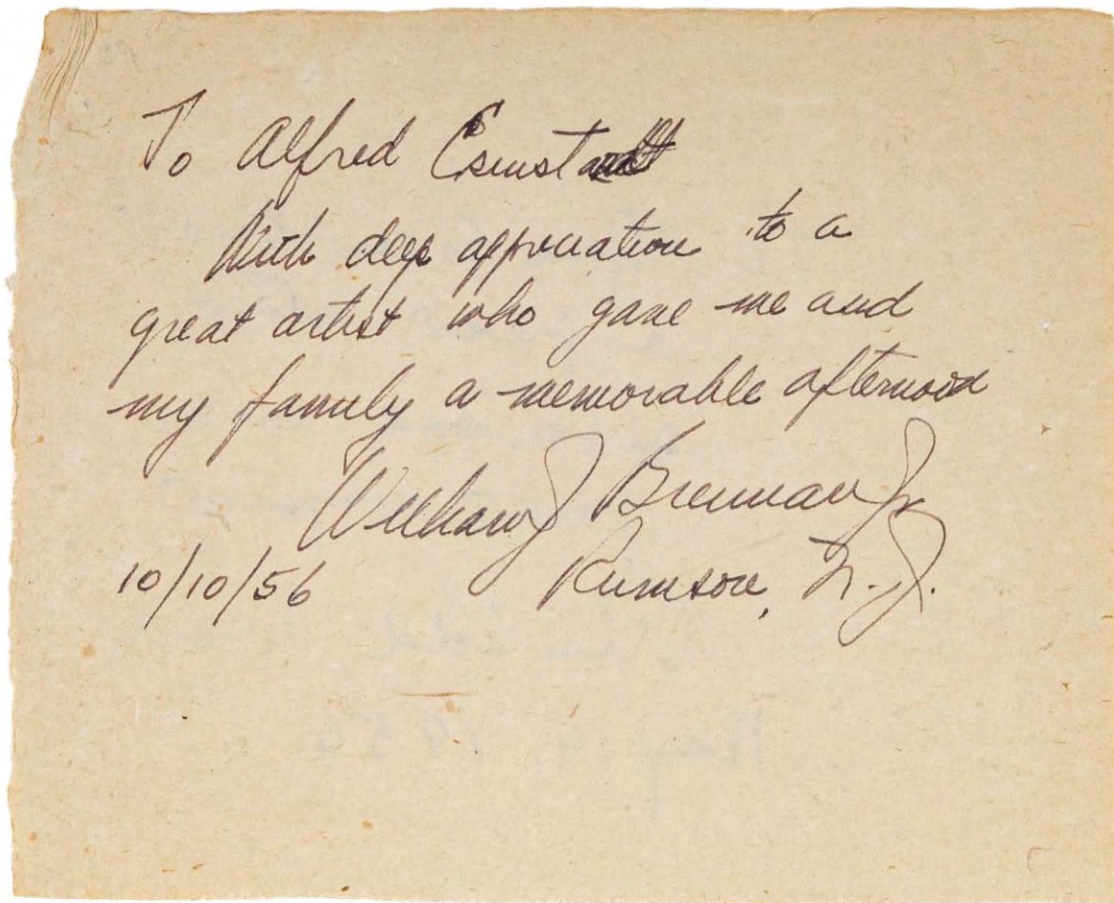 To Alfred Eisenstaedt
With deep appreciation to a
great artist who gave me and
my family a memorable afternoon
William J Brennan Jr
10/10/56 Rumson, N.J.